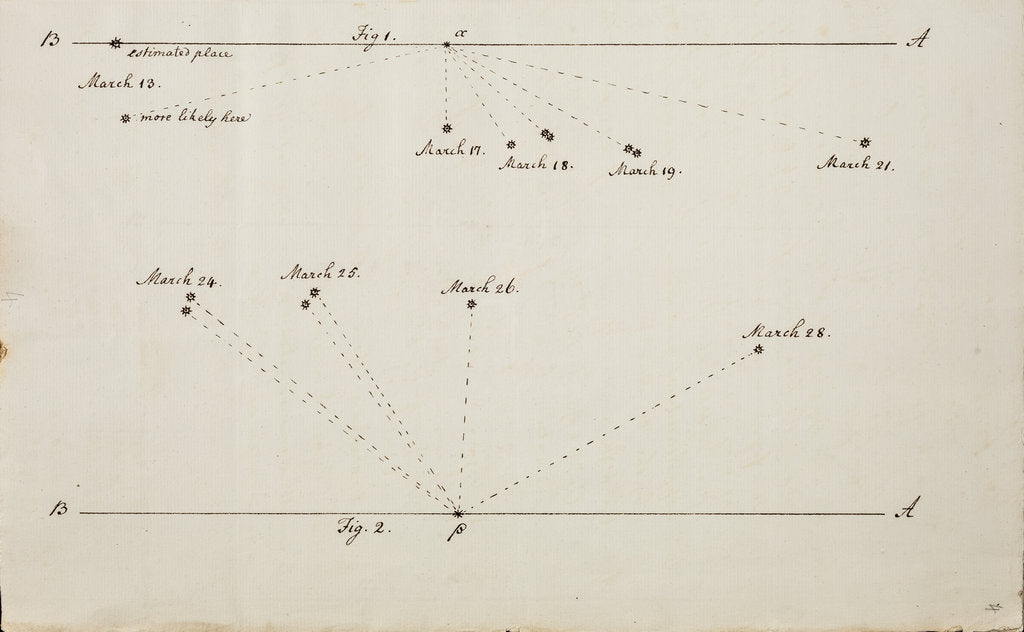 B Fig 1. α A
estimated place
March 13.
more likely here
March 17.
March 18.
March 19.
March 21.
March 24.
March 25.
March 26.
March 28.
B A
Fig. 2. β